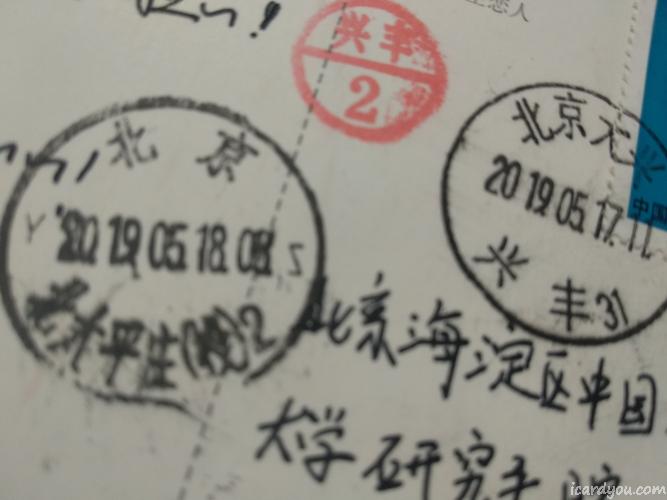 兴丰
2
北京
2019.05.18.08
北京大兴
2019.05.17.11
兴丰31
北京海淀区中国
大学研究
icardyou.com